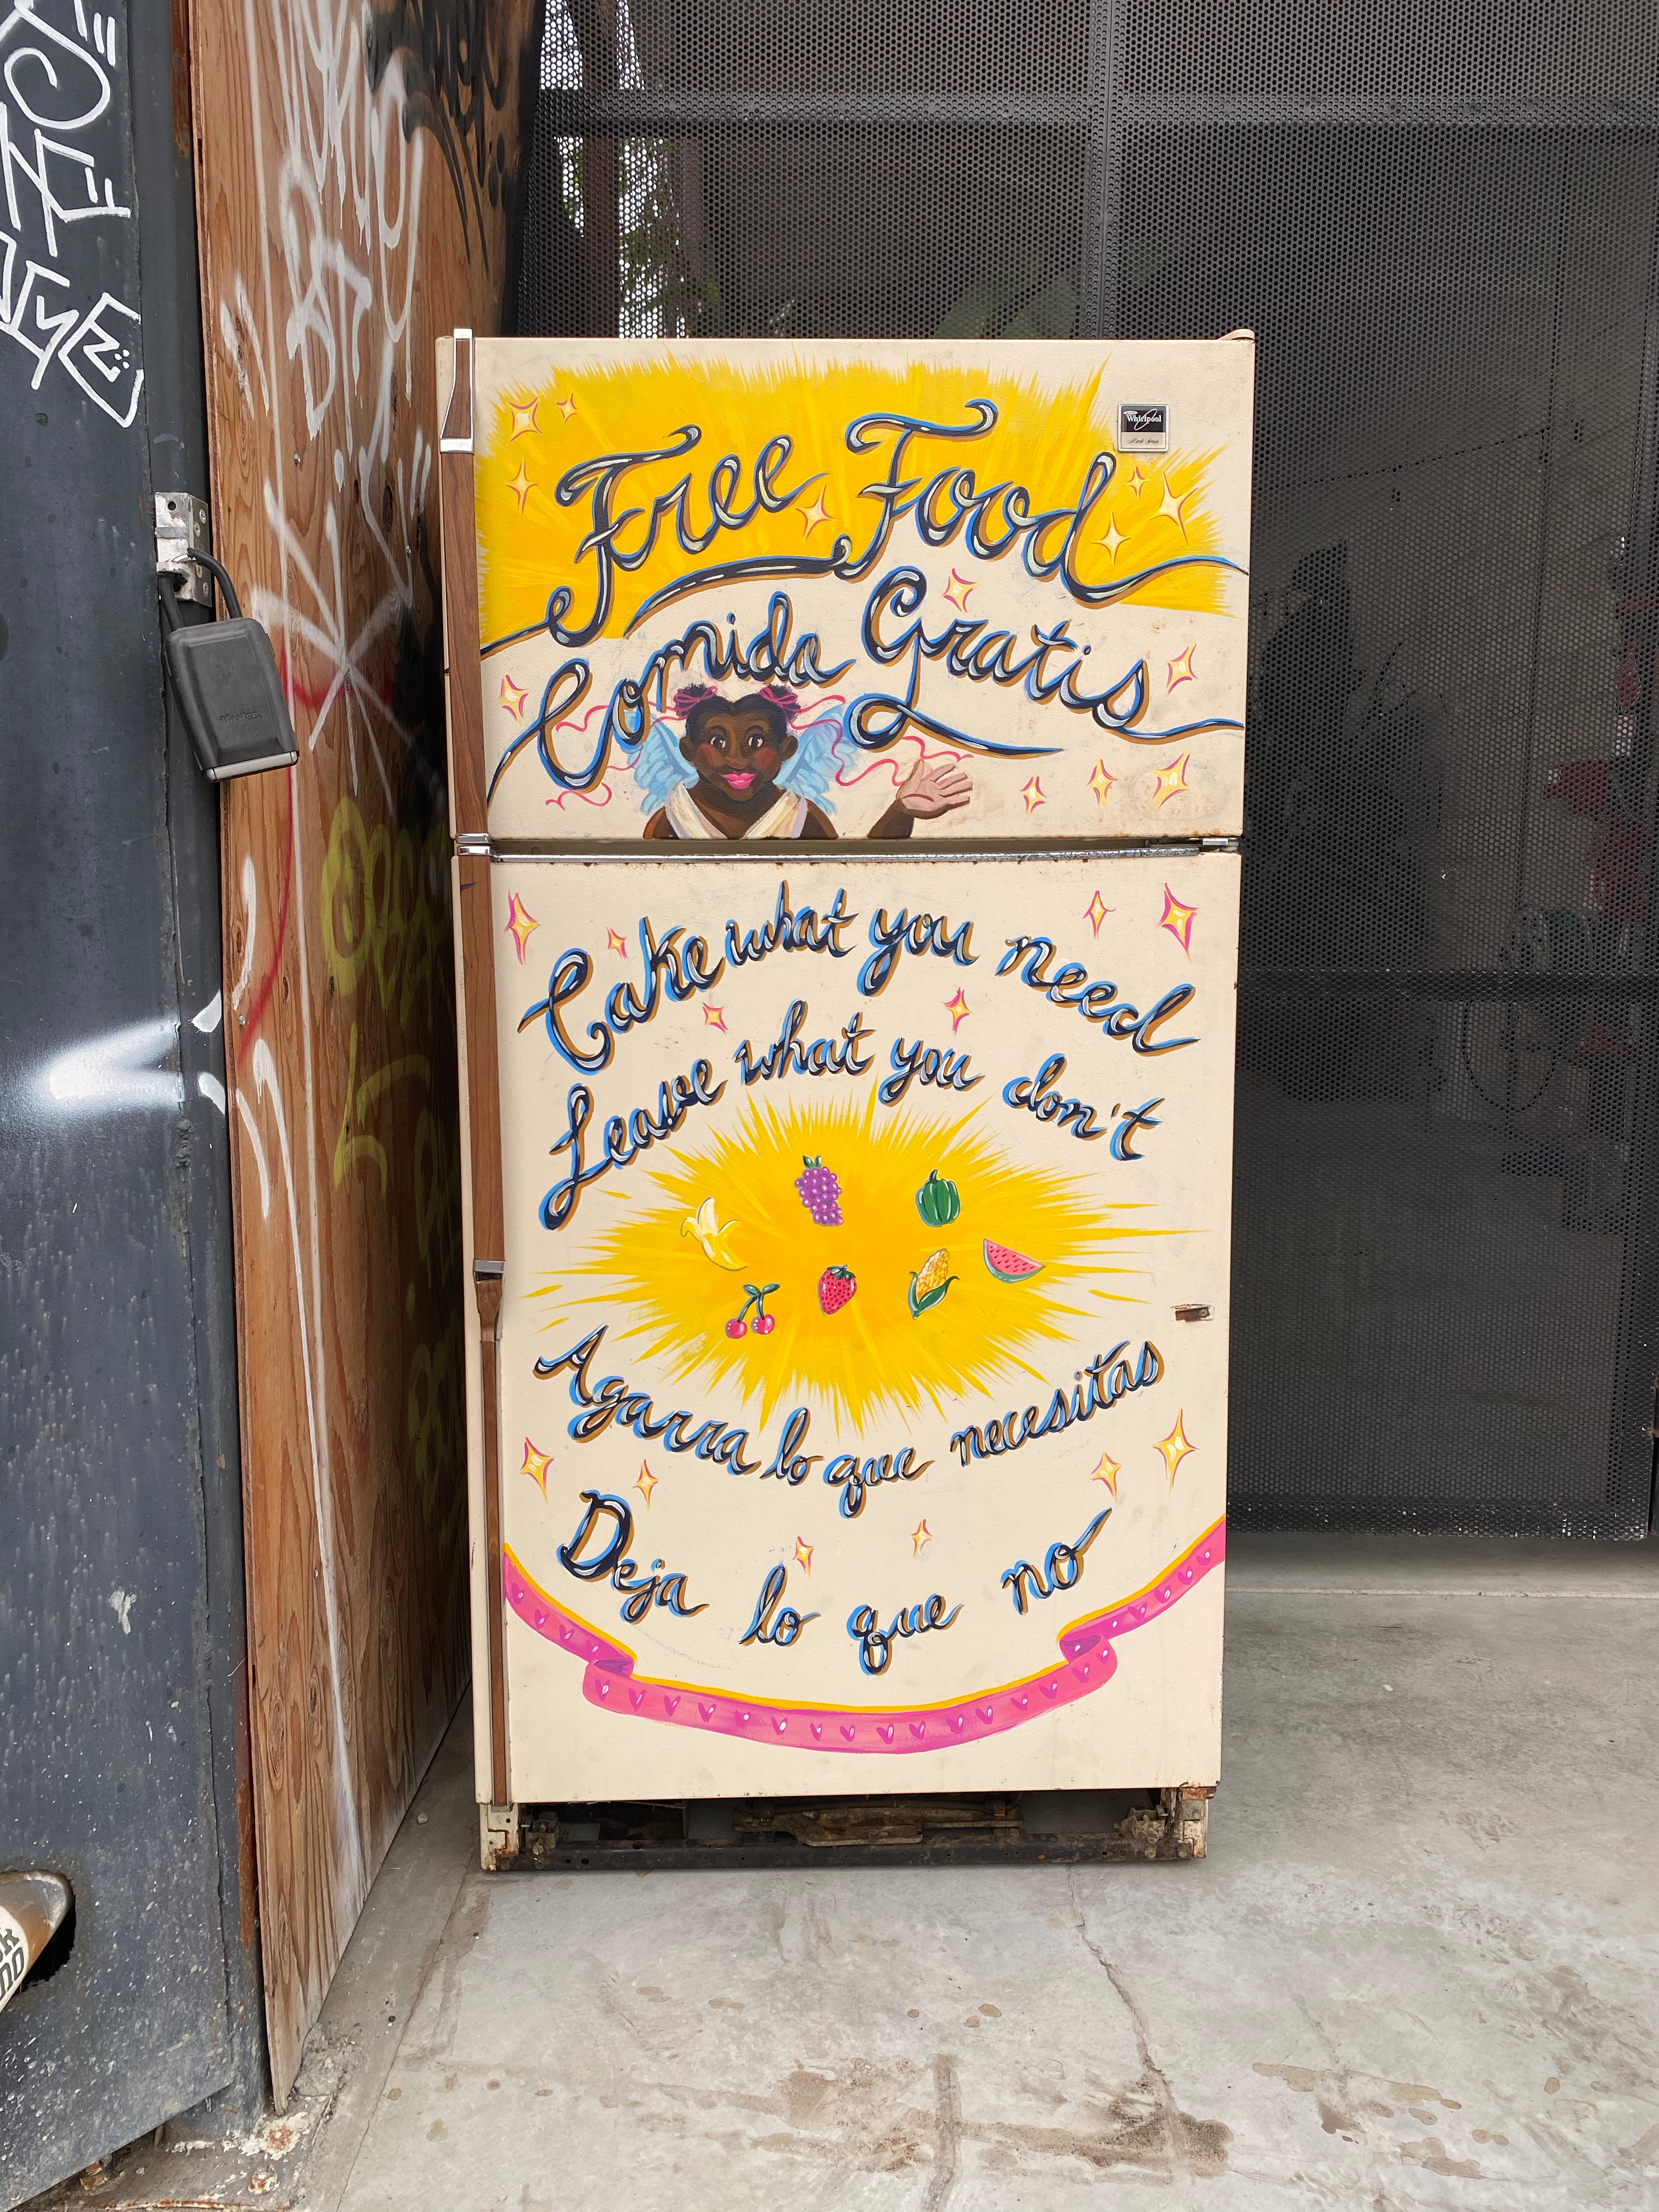 Whirlpool
Free Food
Comida Gratis
Take what you need
Leave what you don't
Agarra lo que necesitas
Deja lo que no